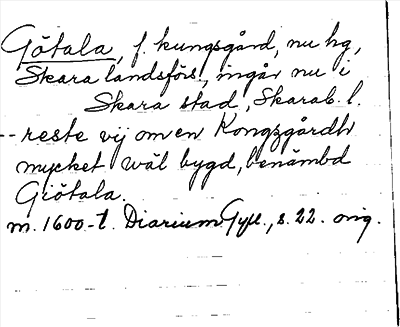 Götala, f. kungsgård, nu hg,
Skara landsförs., ingår nu i
Skara stad, Skarab. l.
-- reste vij om en Kongzgårdh
mycket wäl bygd, benämbd
Giötala.
m. 1600-t. Diarium Gyll., s. 22. orig.